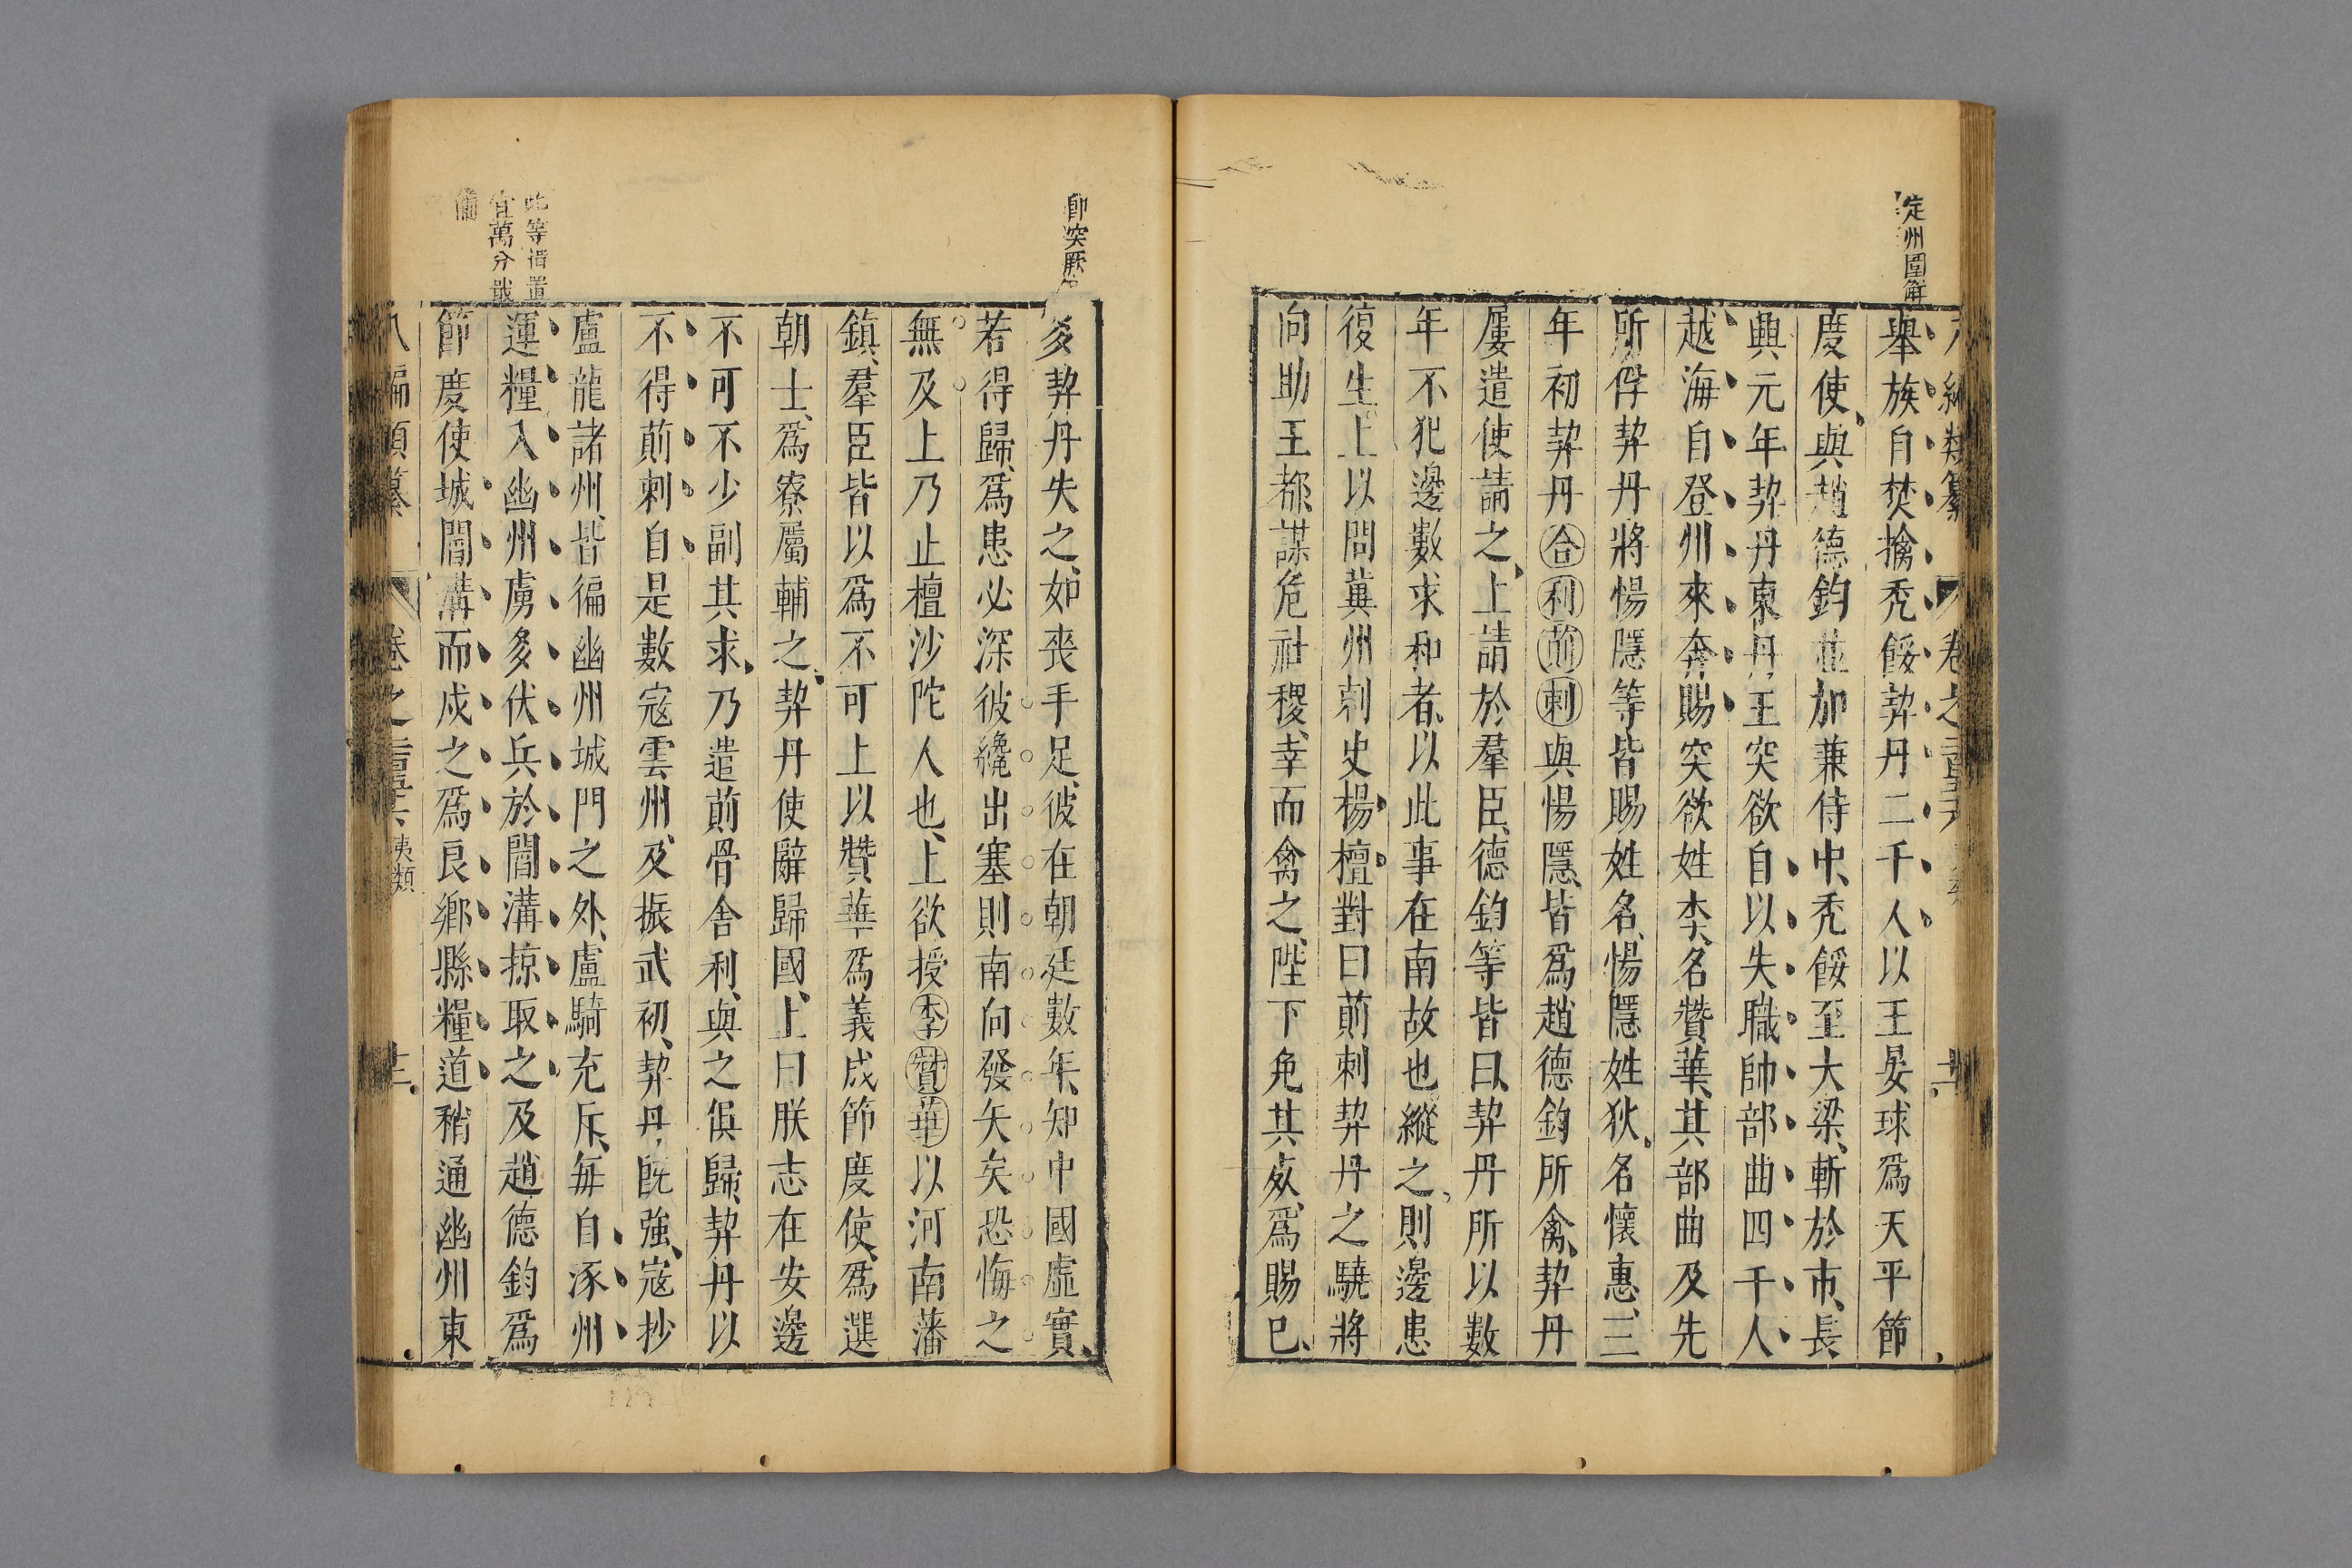 定州圍解
舉族自焚擒禿餒契丹二千人以王晏球爲天平節
度使與趙德鈞並加兼侍中禿餒至大梁斬於市長
興元年契丹東丹王突欲自以失職帥部曲四千人
越海自登州來奔賜突欲姓李名贊華其部曲及先
所俘契丹將惕隱等皆賜姓名惕隱姓狄名懷惠三
年初契丹舍利荝剌與惕隱皆爲趙德鈞所禽契丹
屢遣使請之上請於羣臣德鈞等皆曰契丹所以數
年不犯邊數求和者以此事在南故也縱之則邊患
復生上以問冀州刺史楊檀對曰荝剌契丹之驍將
向助王都謀危社稷幸而禽之陛下免其死爲賜已
卽突厥
多契丹失之如喪手足彼在朝廷數年知中國虛實
若得歸爲患必深彼纔出塞則南向發矢矣恐悔之
無及上乃止檀沙陀人也上欲授李贊華以河南藩
鎮羣臣皆以爲不可上以贊華爲義成節度使爲選
朝士爲寮屬輔之契丹使辭歸國上曰朕志在安邊
不可不少副其求乃遣荝骨舍利與之俱歸契丹以
不得荝剌自是數寇雲州及振武初契丹旣強寇抄
盧龍諸州皆徧幽州城門之外虜騎充斥每自涿州
運糧入幽州虜多伏兵於閻溝掠取之及趙德鈞爲
節度使城閻溝而戍之爲良鄉縣糧道稍通幽州東
此等措置
宜萬分戒
備
八編類纂 卷之 夷類